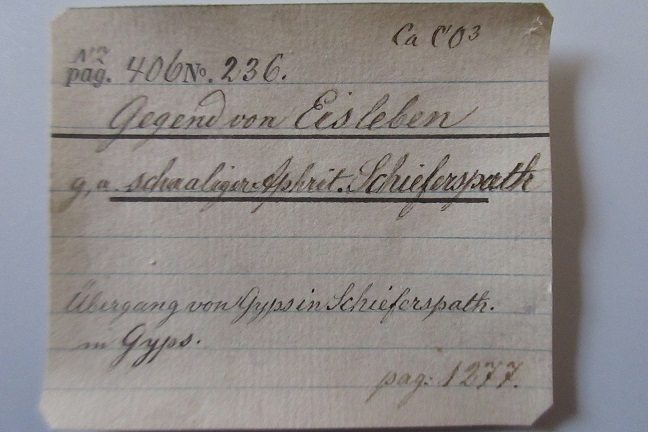 Ca CO3
pag. 406 No. 236.
Gegend von Eisleben
g, a. schaaliger Aphrit. Schieferspath
Übergang von Gyps in Schieferspath.
in Gyps.
pag: 1277.